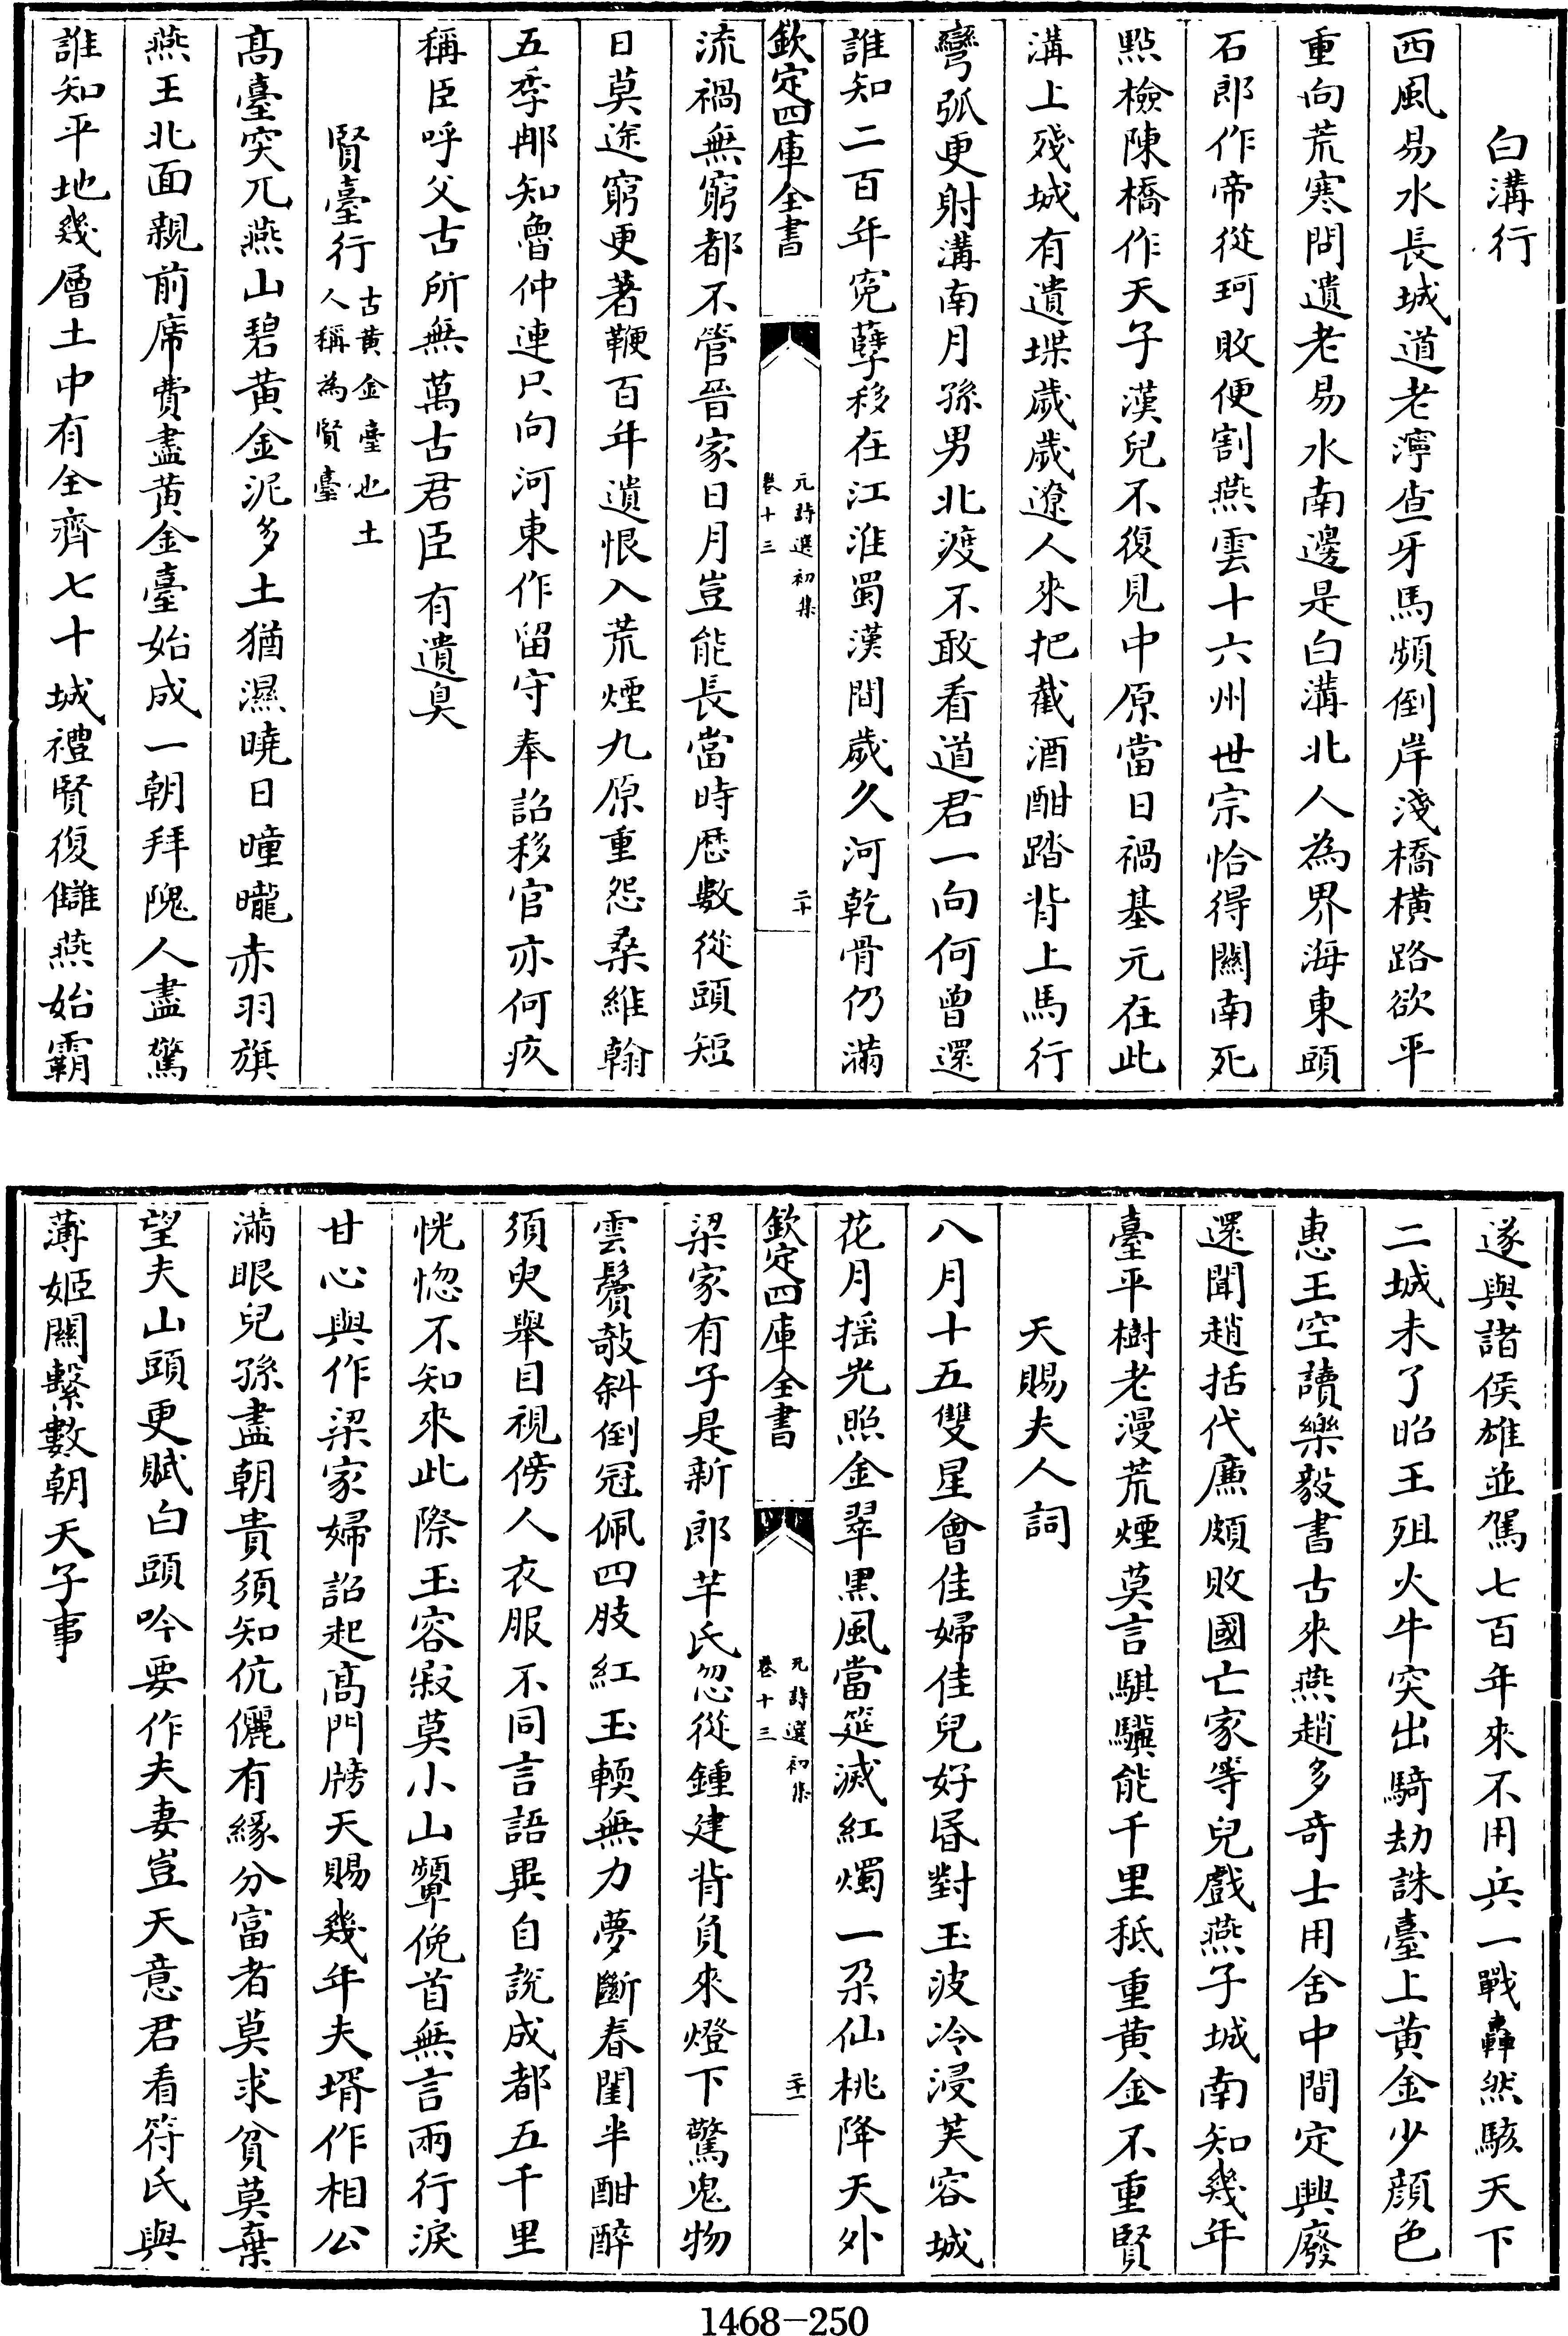 白溝行
西風易水長城道老濘查牙馬頻倒岸淺橋橫路欲平
重向荒寒問遺老易水南邊是白溝北人為界海東頭
石郎作帝從珂敗便割燕雲十六州世宗恰得關南死
點檢陳橋作天子漢兒不復見中原當日禍基元在此
溝上殘城有遺堞歲歲遼人來把截酒酣踏背上馬行
彎弧更射溝南月孫男北渡不敢看道君一向何曾還
誰知二百年寃孽移在江淮蜀漢間歲久河乾骨仍滿
欽定四庫全書
元詩選初集
卷十三
二十
流禍無窮都不管晉家日月豈能長當時厯數從頭短
日莫途窮更著鞭百年遺恨入荒煙九原重怨桑維翰
五季那知魯仲連只向河東作留守奉詔移官亦何疚
稱臣呼父古所無萬古君臣有遺臭
賢臺行古黃金臺也土人稱為賢臺
高臺突兀燕山碧黃金泥多土猶濕曉日曈曨赤羽旗
燕王北面親前席費盡黃金臺始成一朝拜隗人盡驚
誰知平地幾層土中有全齊七十城禮賢復讎燕始霸
遂與諸侯雄並駕七百年來不用兵一戰轟然駭天下
二城未了昭王殂火牛突出騎劫誅臺上黃金少顏色
惠王空讀樂毅書古來燕趙多奇士用舍中間定興廢
還聞趙括代廉頗敗國亡家等兒戲燕子城南知幾年
臺平樹老漫荒煙莫言騏驥能千里秪重黃金不重賢
天賜夫人詞
八月十五雙星會佳婦佳兒好㫪對玉波冷浸芙容城
花月搖光照金翠黑風當筵滅紅燭一朵仙桃降天外
欽定四庫全書
元詩選初集
卷十三
二十一
梁家有子是新郎芊氏忽從鍾建背負來燈下驚鬼物
雲鬢敧斜倒冠佩四肢紅玉輭無力夢斷春閨半酣醉
須臾舉目視傍人衣服不同言語異自說成都五千里
恍惚不知來此際玉容寂莫小山顰俛首無言兩行淚
甘心與作梁家婦詔起高門牓天賜幾年夫壻作相公
滿眼兒孫盡朝貴須知伉儷有緣分富者莫求貧莫棄
望夫山頭更賦白頭吟要作夫妻豈天意君看符氏與
薄姬關繫數朝天子事
1468-250